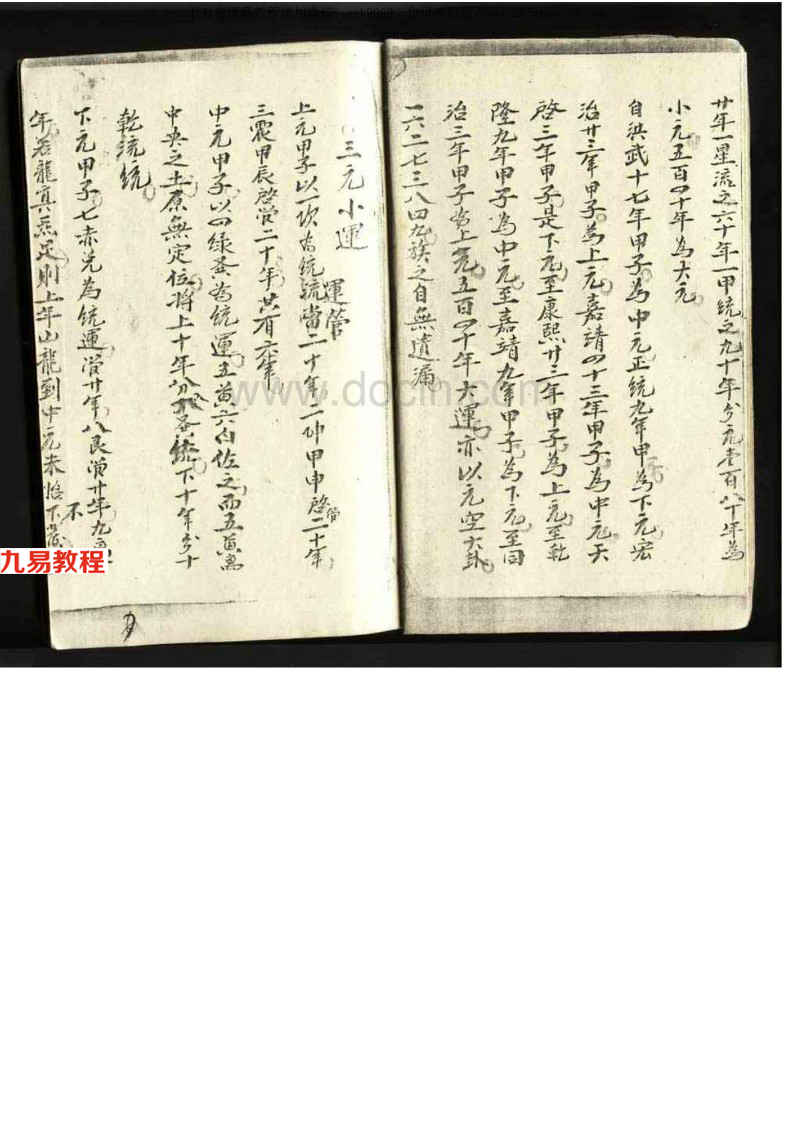 廿年一星流之六十年一甲統之九十年分元壹百八十年為
小元五百四十年為大元
自洪武十七年甲子為中元正統九年甲為下元宏
治廿三年甲子為上元嘉靖四十三年甲子為中元天
啓三年甲子是下元至康熙廿三年甲子為上元至乾
隆九年甲子為中元至嘉靖九年甲子為下元至同
治三年甲子為上元五百四十年大運亦以元空大卦
一六二七三八四九族之自無遺漏
三元小運
運管
上元甲子以一坎為統統當二十年二坤甲申啓管二十年
三震甲辰啓管二十年共有六十年
中元甲子以四綠巽為統運五黃六白佐之而五黃為
中央之土原無定位將上十年分巽各統下十年分十
乾流統
下元甲子七赤兌為統運管廿年八艮管廿年九
年若龍真氣足則上年山龍到中元未
不
九易教程
www.docin.com